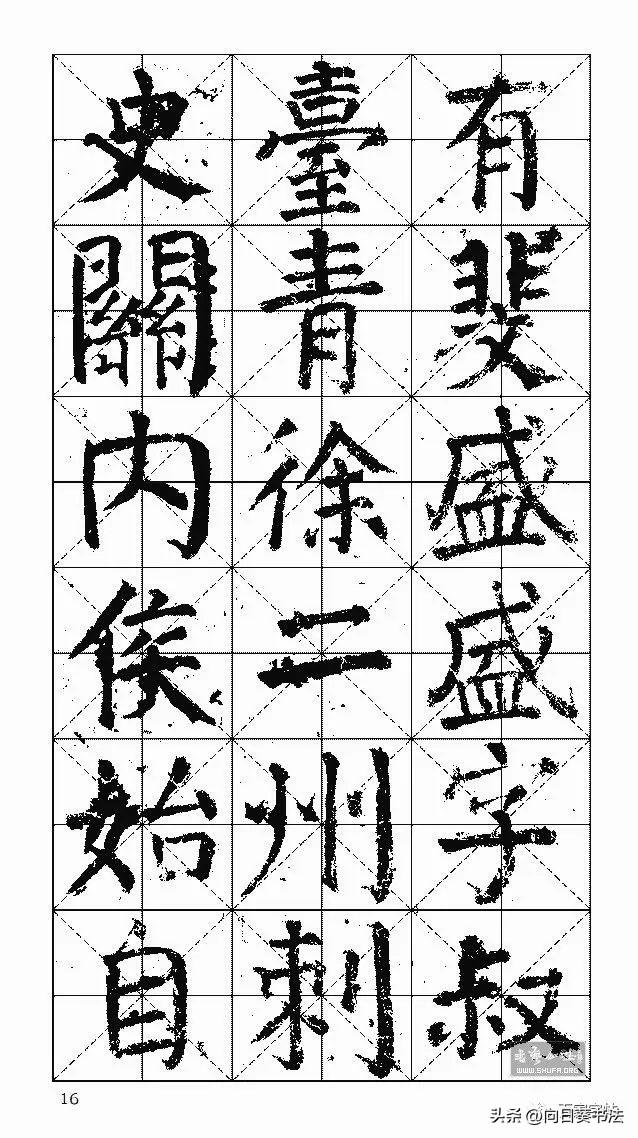 有斐盛盛字叔
臺青徐二州刺
史關內侯始自
16
WWW.SHUFA.ORG
头条 @向日葵书法